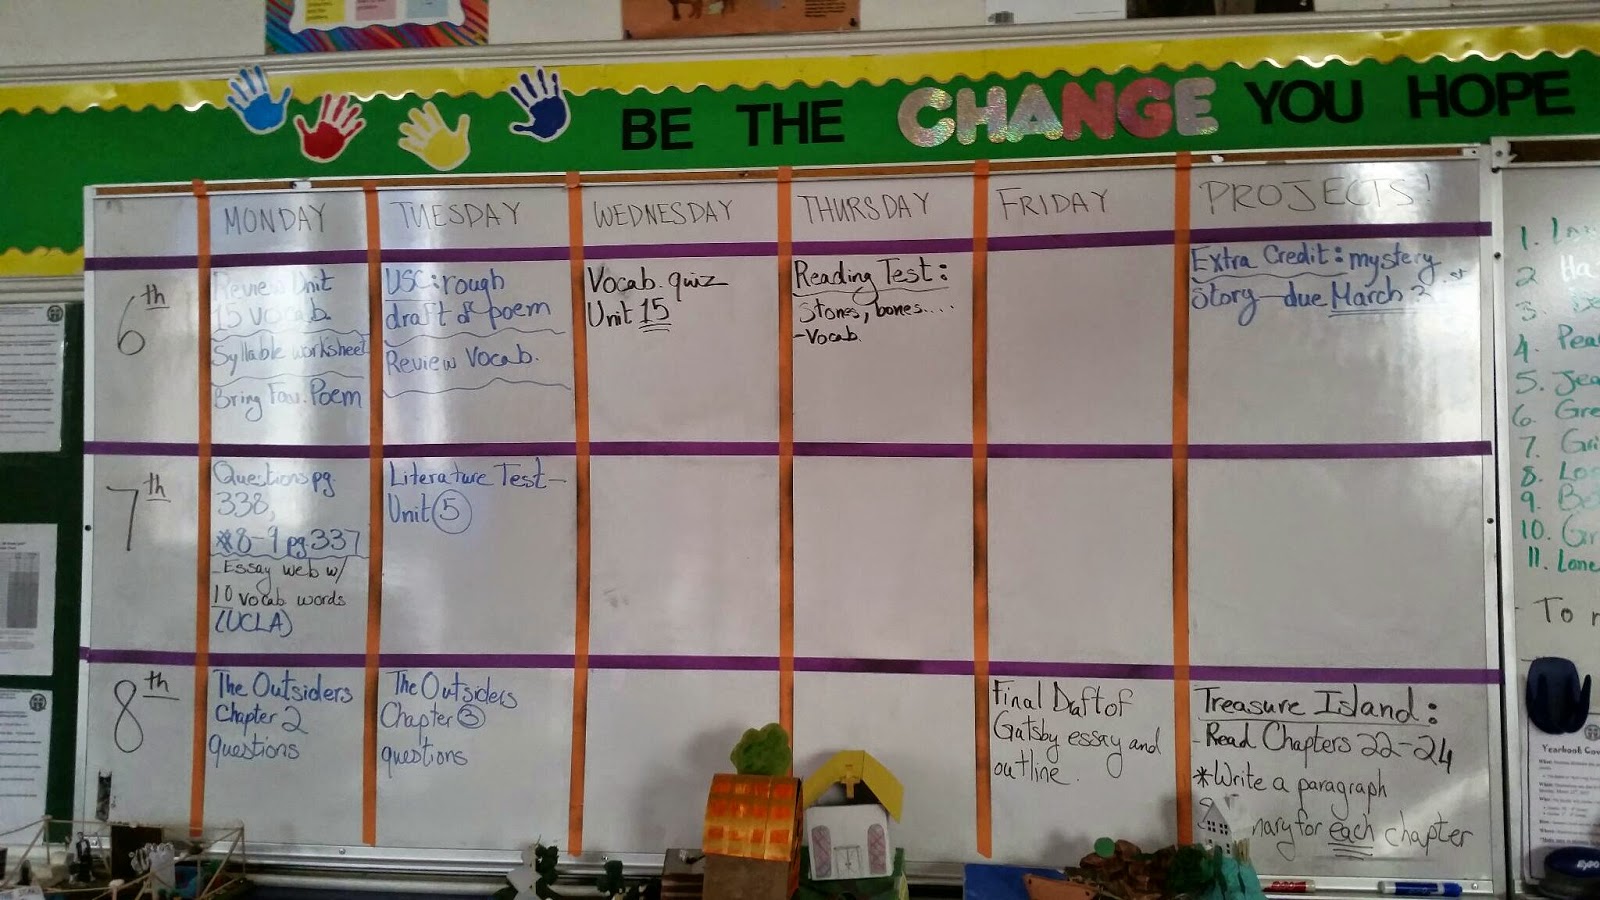 BE THE CHANGE YOU HOPE
MONDAY
TUESDAY
WEDNESDAY
THURSDAY
FRIDAY
PROJECTS!
6th
Review Unit
15 vocab.
Syllable worksheet
Bring Fav. Poem
USC: rough
draft of poem
Review Vocab.
Vocab. quiz
Unit 15
Reading Test:
Stones, bones....
-Vocab.
Extra Credit: mystery
Story due March
7th
Questions pg.
338,
*8-9 pg. 337
- Essay web w/
10 vocab words
(UCLA)
Literature Test-
Unit 5
8th
The Outsiders
Chapter 2
questions
The Outsiders
Chapter 3
questions
Final Daft of
Gatsby essay and
outline.
Treasure Island:
- Read Chapters 22-24
*Write a paragraph
for each chapter
1.
2
3.
4.
5.
6.
7.
8.
9.
10.
11.
- To
Yearbook
EXPO